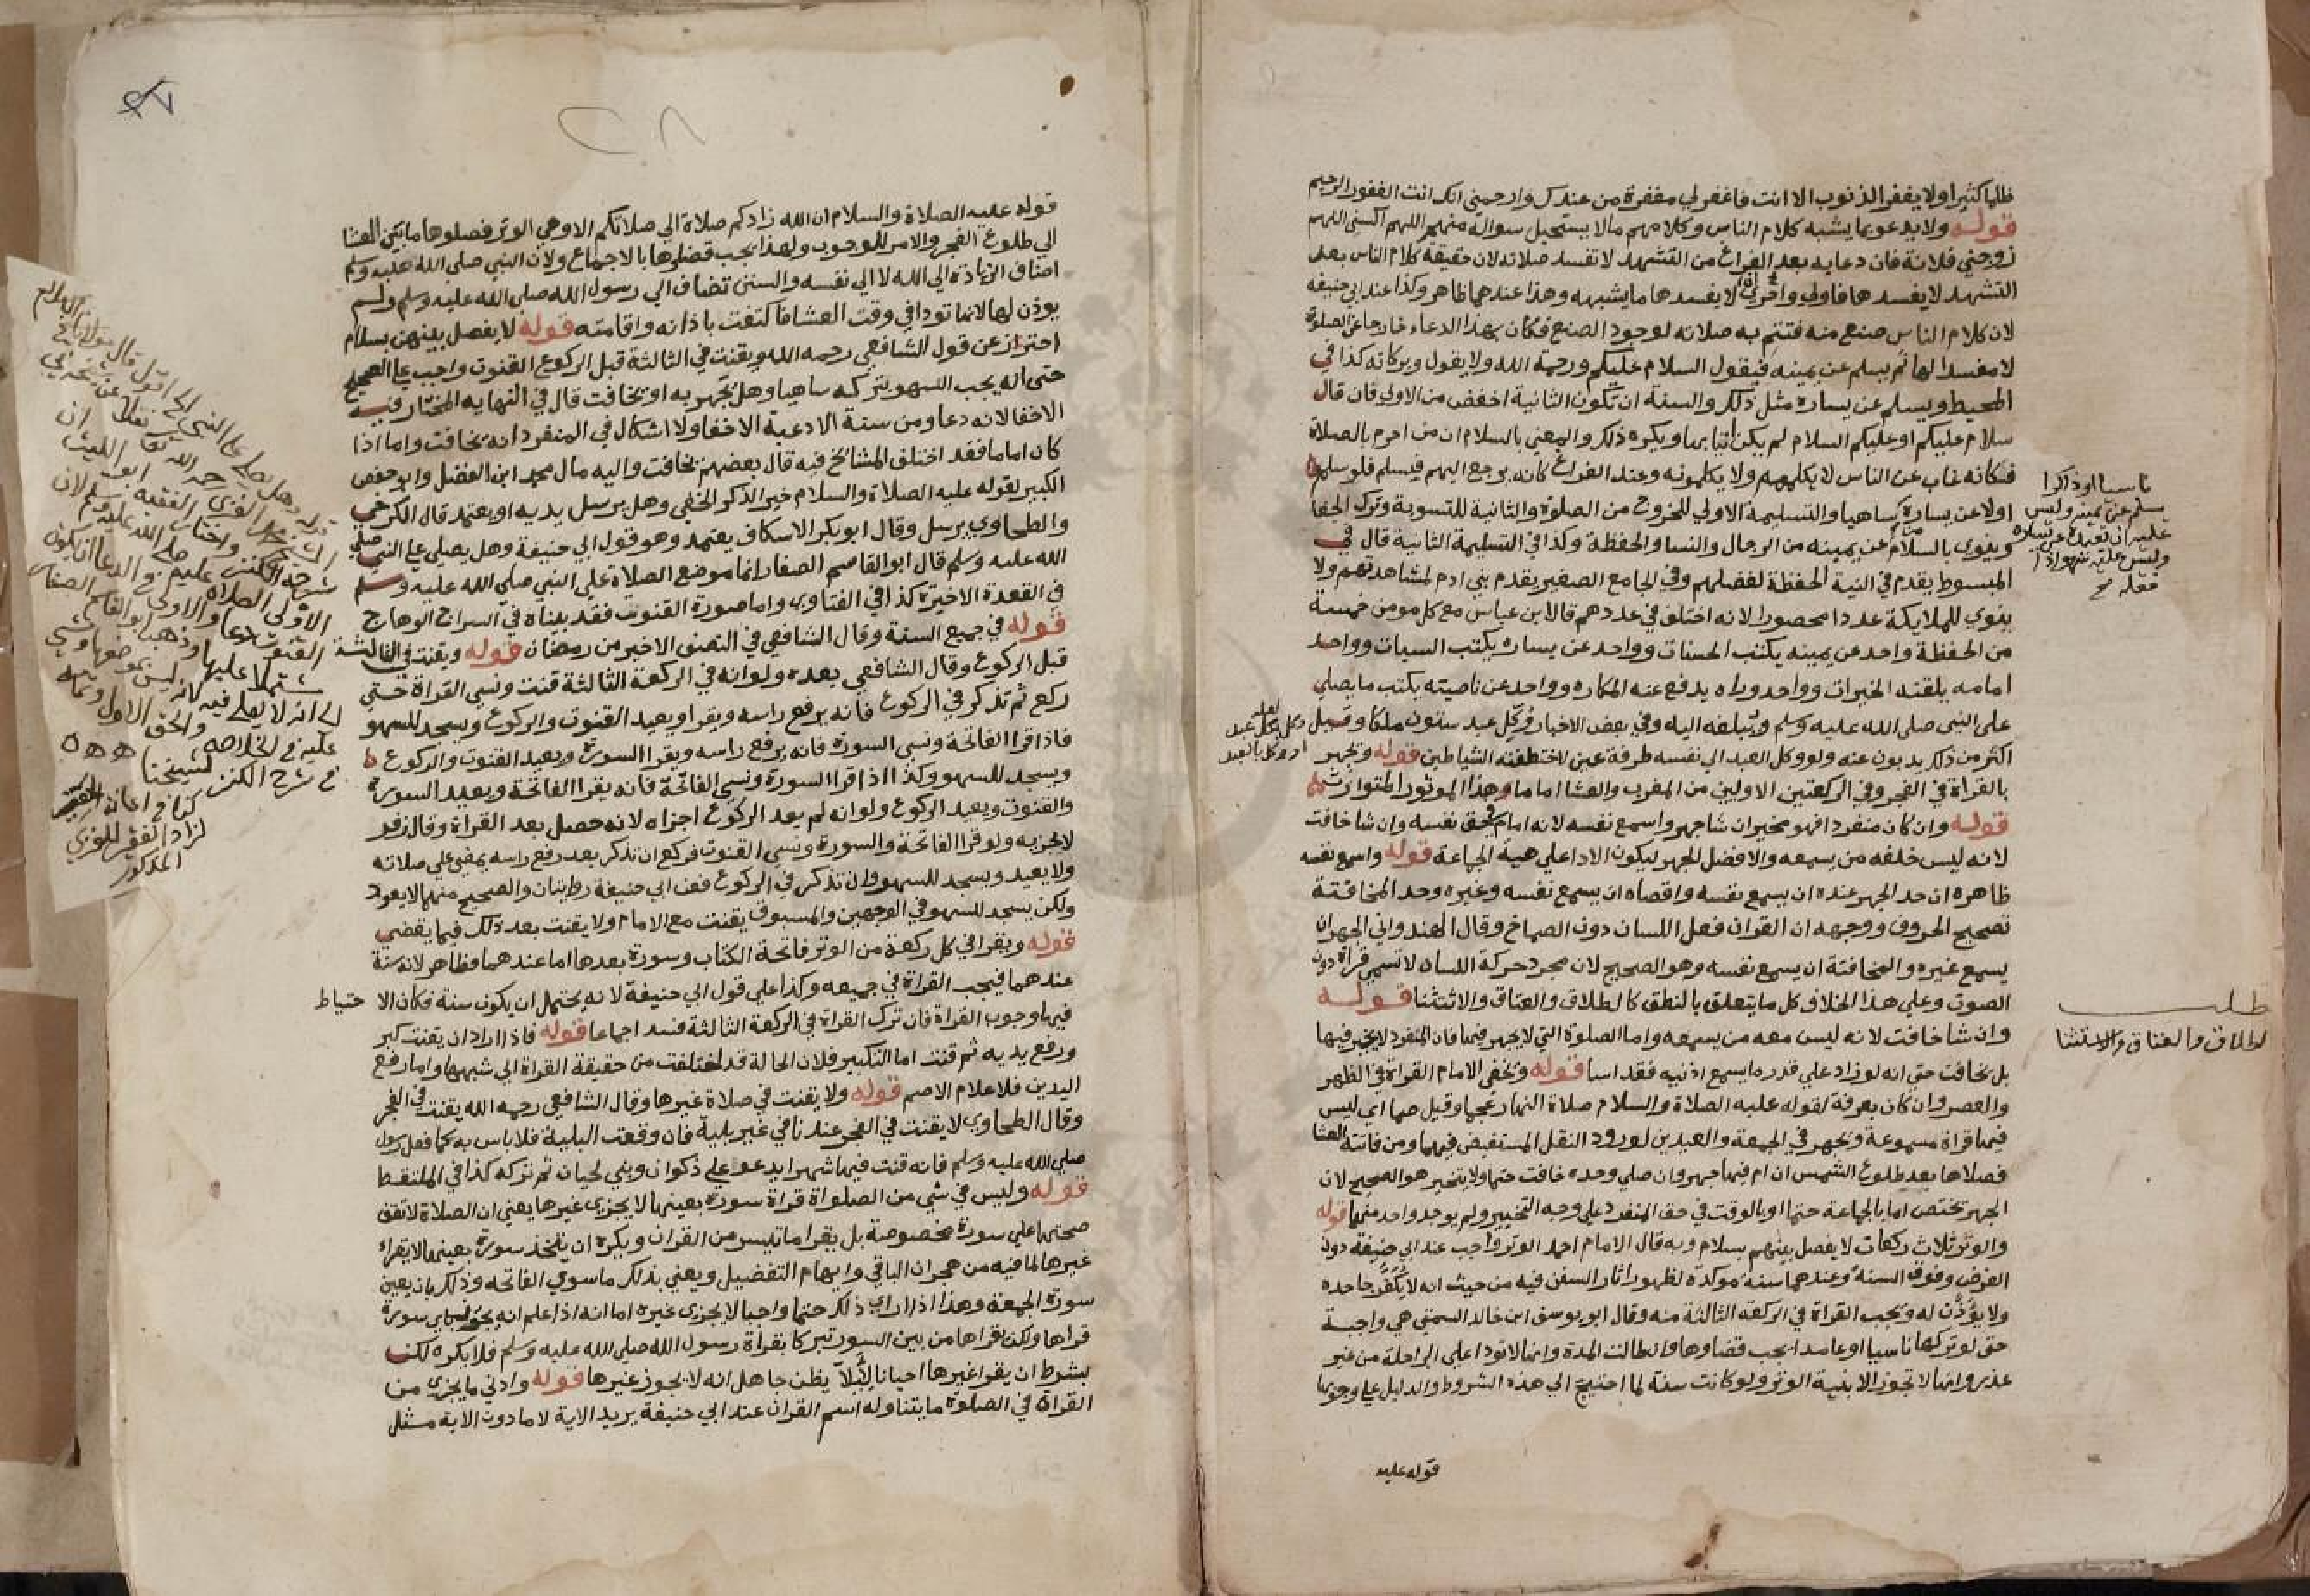 ظلما كثيرا ولا يغفر الذنوب الا انت فاغفرلي مغفرة من عندك وارحمني انك انت الغفور الرحيم
قوله ولا يدعو بما يشبه كلام الناس وكلامهم مالا يستحيل سواله منهم اللهم اكسني اللهم
زوجني فلانة فان دعا به بعد الفراغ من التشهد لا تفسد صلاته لان حقيقة كلام الناس بعد
التشهد لا يفسدها فاولي واحري ان لا يفسدها ما يشبهه وهذا عندهما ظاهر وكذا عند ابي حنيفه
لان كلام الناس صنع منه فتتم به صلاته لوجود الصنع فكان بهذا الدعاء خارجا عن الصلوة
لا مفسدا لها ثم يسلم عن يمينه فيقول السلام عليكم ورحمة الله ولا يقول وبركاته كذا في
المحيط ويسلم عن يساره مثل ذلك والسنة ان تكون الثانية اخفض من الاولي فان قال
سلام عليكم او عليكم السلام لم يكن اتيا بها ويكره ذلك والمعني بالسلام ان من احرم بالصلاة
فكانه غاب عن الناس لا يكلمهم ولا يكلمونه وعند الفراغ كانه يرجع اليهم فيسلم فلو سلم
اولا عن يساره ساهيا والتسليمة الاولي للخروج من الصلوة والثانية للتسوية وترك الجفا
وينوي بالسلام من عن يمينه من الرجال والنسا والحفظة وكذا في التسليمة الثانية قال في
المبسوط يقدم في النية الحفظة لفضلهم وفي الجامع الصغير يقدم بني ادم لمشاهدتهم ولا
ينوي للملايكة عددا محصورا لانه اختلف في عددهم قال ابن عباس مع كل مومن خمسة
من الحفظة واحد عن يمينه يكتب الحسنات وواحد عن يساره يكتب السيات وواحد
امامه يلقنه الخيرات وواحد وراه يدفع عنه المكاره وواحد عن ناصيته يكتب ما يصلي
على النبي صلى الله عليه وسلم ويبلغه اليه وفي بعض الاخبار وكل عبد ستون ملكا وقيل
اكثر من ذلك يذبون عنه ولو وكل العبد الى نفسه طرفة عين لاختطفته الشياطين قوله ويجهر
بالقراة في الفجر وفي الركعتين الاوليين من المغرب والعشا اماما وهذا الموثور المتوارث
قوله وان كان منفردا فهو مخير ان شا جهر واسمع نفسه لانه امام في حق نفسه وان شا خافت
لانه ليس خلفه من يسمعه والافضل الجهر ليكون الادا علي هية الجماعة قوله واسمع نفسه
ظاهره ان حد الجهر عنده ان يسمع نفسه واقصاه ان يسمع نفسه وغيره وحد المخافتة
تصحيح الحروف ووجهه ان القران فعل اللسان دون الصماخ وقال الهندواني الجهر ان
يسمع غيره والمخافتة ان يسمع نفسه وهو الصحيح لان مجرد حركة اللسان لا تسمي قراة دون
الصوت وعلي هذا الخلاف كل ما يتعلق بالنطق كالطلاق والعتاق والاستثنا قوله
وان شا خافت لانه ليس معه من يسمعه واما الصلوة التي لا يجهر فيها فان المنفرد لا يخير فيها
بل يخافت حتي انه لو زاد علي قدر ما يسمع اذنيه فقد اسا قوله ويخفي الامام القراة في الظهر
والعصر وان كان بعرفة لقوله عليه الصلاة والسلام صلاة النهار عجما وقيل صما اي ليس
فيها قراة مسموعة ويجهر في الجمعة والعيدين لورود النقل المستفيض فيهما ومن فاتته العشا
فصلاها بعد طلوع الشمس ان ام فيها جهر وان صلي وحده خافت حتما ولا يتخير هو الصحيح لان
الجهر تختص اما بالجماعة حتما او بالوقت في حق المنفرد علي وجه التخيير ولم يوجد واحد منهما قوله
والوتر ثلاث ركعات لا يفصل بينهم بسلام وبه قال الامام احمد الوتر واجب عند ابي حنيفة دون
الفرض وفوق السنة وعندهما سنة موكدة لظهور اثار السنن فيه من حيث انه لا يكفر جاحده
ولا يؤذن له ويجب القراة في الركعة الثالثة منه وقال ابو يوسف ابن خالد السمتي هي واجبة
حتى لو تركها ناسيا او عامدا يجب قضاوها وان طالت المدة وانها لا تودا على الراحلة من غير
عذر وانها لا تجوز الا بنية الوتر ولو كانت سنة لما احتيج الي هذه الشروط والدليل علي وجوبها
قوله عليه
ناسيا او ذاكرا
يسلم عن يمينه وليس
عليه ان يعيد عن يساره
وليس عليه سهو اذا
فعله صح
وكل بكل عبد
او وكل بالعبد
طلب
الطلاق والعتاق والاستثنا
قوله عليه الصلاة والسلام ان الله زادكم صلاة الي صلاتكم الا وهي الوتر فصلوها ما بين العشا
الي طلوع الفجر والامر للوجوب ولهذا يجب قضاوها بالاجماع ولان النبي صلى الله عليه وسلم
اضاف الزيادة الي الله لا الي نفسه والسنن تضاف الي رسول الله صلى الله عليه وسلم ولم
يوذن لها لانها تودا في وقت العشا فاكتفت باذانه واقامته قوله لا يفصل بينهن بسلام
احتراز عن قول الشافعي رحمه الله ويقنت في الثالثة قبل الركوع القنوت واجب علي الصحيح
حتى انه يجب السهو بتركه ساهيا وهل يجهر به او يخافت قال في النهايه المختار فيه
الاخفا لانه دعا ومن سنة الادعية الاخفا ولا اشكال في المنفرد انه يخافت واما اذا
كان اماما فقد اختلف المشائخ فيه قال بعضهم يخافت واليه مال محمد ابن الفضل وابو حفص
الكبير لقوله عليه الصلاة والسلام خير الذكر الخفي وهل يرسل يديه او يعتمد قال الكرخي
والطحاوي يرسل وقال ابو بكر الاسكاف يعتمد وهو قول ابي حنيفة وهل يصلي علي النبي صلي
الله عليه وسلم قال ابو القاسم الصفار انما موضع الصلاة علي النبي صلي الله عليه وسلم
في القعدة الاخيرة كذا في الفتاوي واما صورة القنوت فقد بيناه في السراج الوهاج
قوله في جميع السنة وقال الشافعي في النصف الاخير من رمضان قوله ويقنت في الثالثة
قبل الركوع وقال الشافعي بعده ولو انه في الركعة الثالثة قنت ونسي القراة حتي
ركع ثم تذكر في الركوع فانه يرفع راسه ويقرا ويعيد القنوت والركوع ويسجد للسهو
فاذا قرا الفاتحة ونسي السورة فانه يرفع راسه ويقرا السورة ويعيد القنوت والركوع
ويسجد للسهو وكذا اذا قرا السورة ونسي الفاتحة فانه يقرا الفاتحة ويعيد السورة
والقنوت ويعيد الركوع ولو انه لم يعد الركوع اجزاه لانه حصل بعد القراة وقال زفر
لا يجزيه ولو قرا الفاتحة والسورة ونسي القنوت فركع ان تذكر بعد رفع راسه يمضي علي صلاته
ولا يعيد ويسجد للسهو وان تذكر في الركوع فعن ابي حنيفة روايتان والصحيح منهما لا يعود
ولكن يسجد للسهو في الوجهين والمسبوق يقنت مع الامام ولا يقنت بعد ذلك فيما يقضي
قوله ويقرا في كل ركعة من الوتر فاتحة الكتاب وسورة بعدها اما عندهما فظاهر لانه سنة
عندهما فيجب القراة في جميعه وكذا علي قول ابي حنيفة لانه يحتمل ان يكون سنة فكان الاحتياط
فيها وجوب القراة فان ترك القراة في الركعة الثالثة فسد اجماعا قوله فاذا اراد ان يقنت كبر
ورفع يديه ثم قنت اما التكبير فلان الحالة قد اختلفت من حقيقة القراة الي شبهها واما رفع
اليدين فلاعلام الاصم قوله ولا يقنت في صلاة غيرها وقال الشافعي رحمه الله يقنت في الفجر
وقال الطحاوي لا يقنت في الفجر عندنا في غير بلية فان وقعت البلية فلا باس به كما فعل رسول
صلي الله عليه وسلم فانه قنت فيها شهرا يدعو علي ذكوان وبني لحيان ثم تركه كذا في الملتقط
قوله وليس في شي من الصلواة قراة سورة بعينها لا يجزي غيرها يعني ان الصلاة لا تقف
صحتها علي سورة مخصوصة بل يقرا ما تيسر من القران ويكره ان يتخذ سورة بعينها لا يقراء
غيرها لما فيه من هجران الباقي وايهام التفضيل ويعني بذلك ما سوي الفاتحه وذلك بان يعين
سورة الجمعة وهذا اذا راي ذلك حتما واجبا لا يجزي غيره اما انه اذا علم انه يجوز باي سورة
قراها ولكن يقراها من بين السور تبركا بقراة رسول الله صلي الله عليه وسلم فلا يكره لكن
بشرط ان يقرا غيرها احيانا لئلا يظن جاهل انه لا يجوز غيرها قوله وادني ما يجزي من
القراة في الصلوة ما يتناوله اسم القران عند ابي حنيفة يريد الاية لا ما دون الاية مثل
قوله وهل يصلي علي النبي الخ اقول قال مولانا
رحمه الله نقلا عن
شرحه للكنز واختار الفقيه ابو الليث ان
الاولي الصلاة عليه صلى الله عليه وسلم لان
القنوت دعا والاولى في الدعا ان يكون
مشتملا عليها وذهب ابو القاسم الصفار
الى انه لا يصلي فيه لانه ليس موضعها ومشي
عليه في الخلاصه والحق الاول
في شرح الكنز لشيخنا
كذا في اعانة الحقير
لزاد الفقير للغزي
المذكور